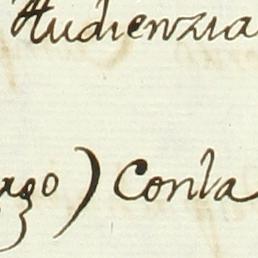 Audienzia
) Conta